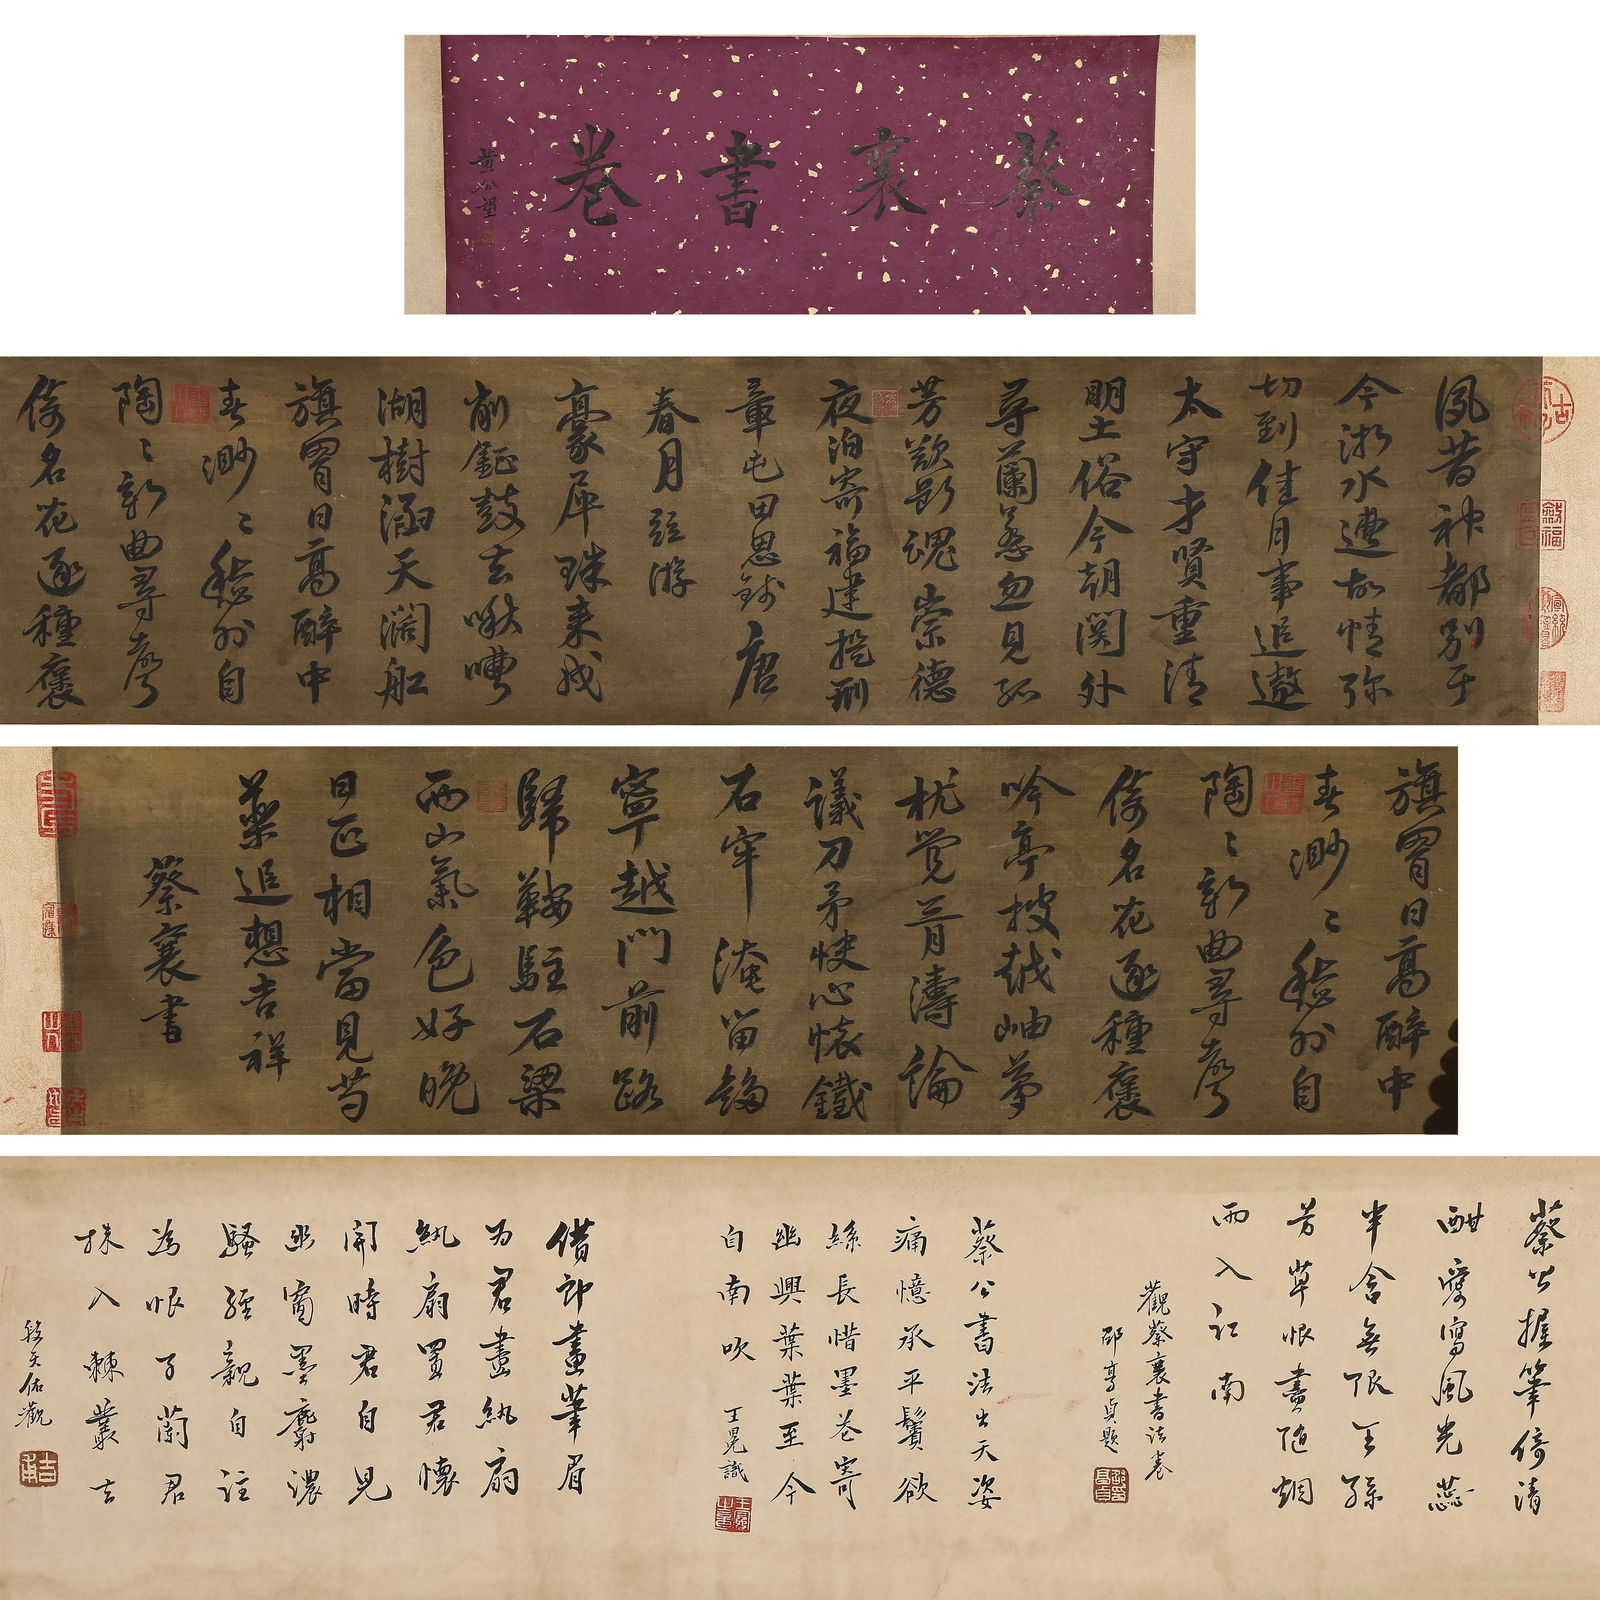 蔡襄書卷
黃公望
夙昔神都別于
今浙水遭故情弥
切到佳月事追遨
太守才賢重清
明土俗今朝関外
尋蘭蕙忽見孤
芳歎斷魂崇德
夜泊寄福建提刑
章屯田思錢唐
春月並游
豪犀珠来戏
削鉦鼓去啾嘈
湖樹涵天闊舡
旗冒日高醉中
春渺〻愁外自
陶〻新曲尋聲
倚名花逐種褒
旗冒日高醉中
春渺〻愁外自
陶〻新曲尋聲
倚名花逐種褒
吟亭披越岫夢
枕觉胥濤論
議刀矛快心懷鐵
石牢淹留
寧越門前路
歸鞍駐石梁
西山氣色好晚
日正相當見芍
藥追想吉祥
蔡襄書
蔡公握筆倚清
酣愛寫風光蕊
半含無限王孫
芳草恨畫隨烟
雨入江南
觀蔡襄書法卷
邵亨貞題
蔡公書法出天姿
痛憶承平鬢欲
絲長惜墨卷寄
幽興葉葉至今
自南吹 王冕識
借郎畫筆眉
为君畫紈扇
紈扇置君懷
開時君自見
幽窗墨麝濃
騷經親自註
為恨子蘭君
抹入棘叢去
段天佑觀